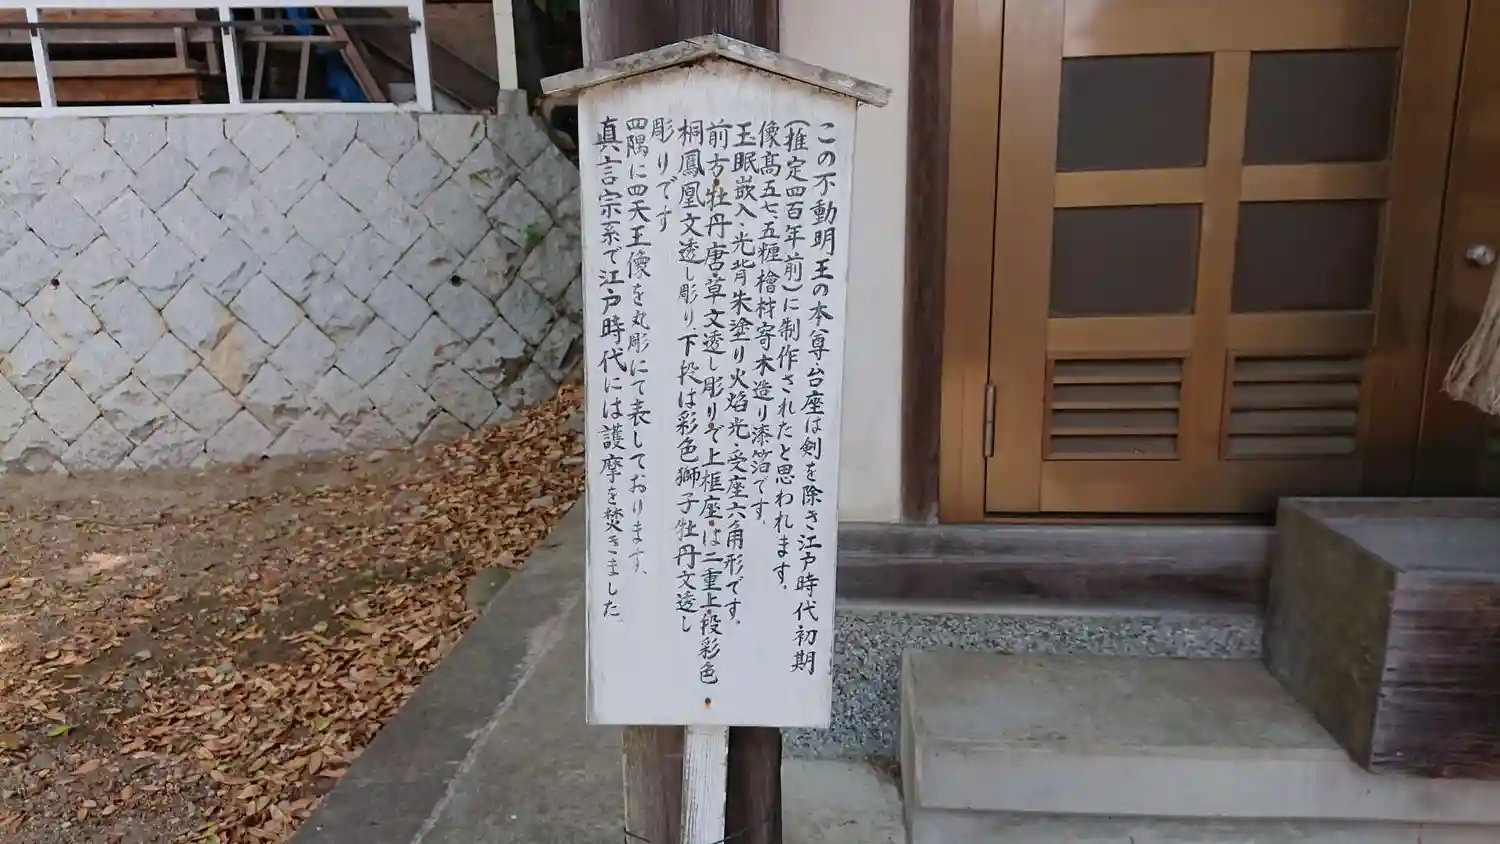 この不動明王の本尊台座は剣を除き江戸時代初期
(推定四百年前)に制作されたと思われます。
像髙五七、五糎檜材寄木造り漆箔です。
玉眠嵌入、光背朱塗り火焰光受座六角形です。
前方牡丹唐草文透し彫りで上框座は二重上段彩色
桐鳳凰文透し彫り、下段は彩色獅子牡丹文透し
彫りです
四隅に四天王像を丸彫にて表しております、
真言宗系で江戸時代には護摩を焚きました。